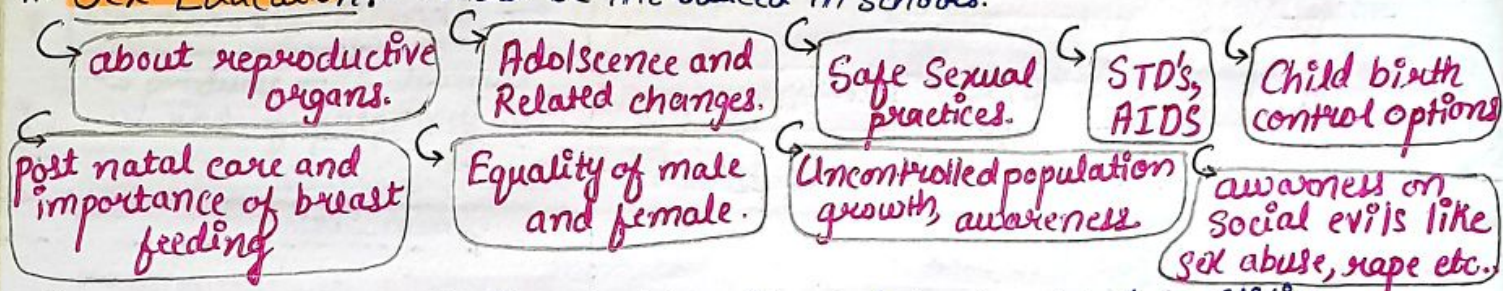 Sex Education:
in schools.
about reproductive
organs.
Adolscence and
Related changes.
Safe Sexual
practices.
STD's,
AIDS
Child birth
control options
post natal care and
importance of breast
feeding
Equality of male
and female.
Uncontrolled population
growth, awareness
awarness on
Social evils like
sex abuse, rape etc.